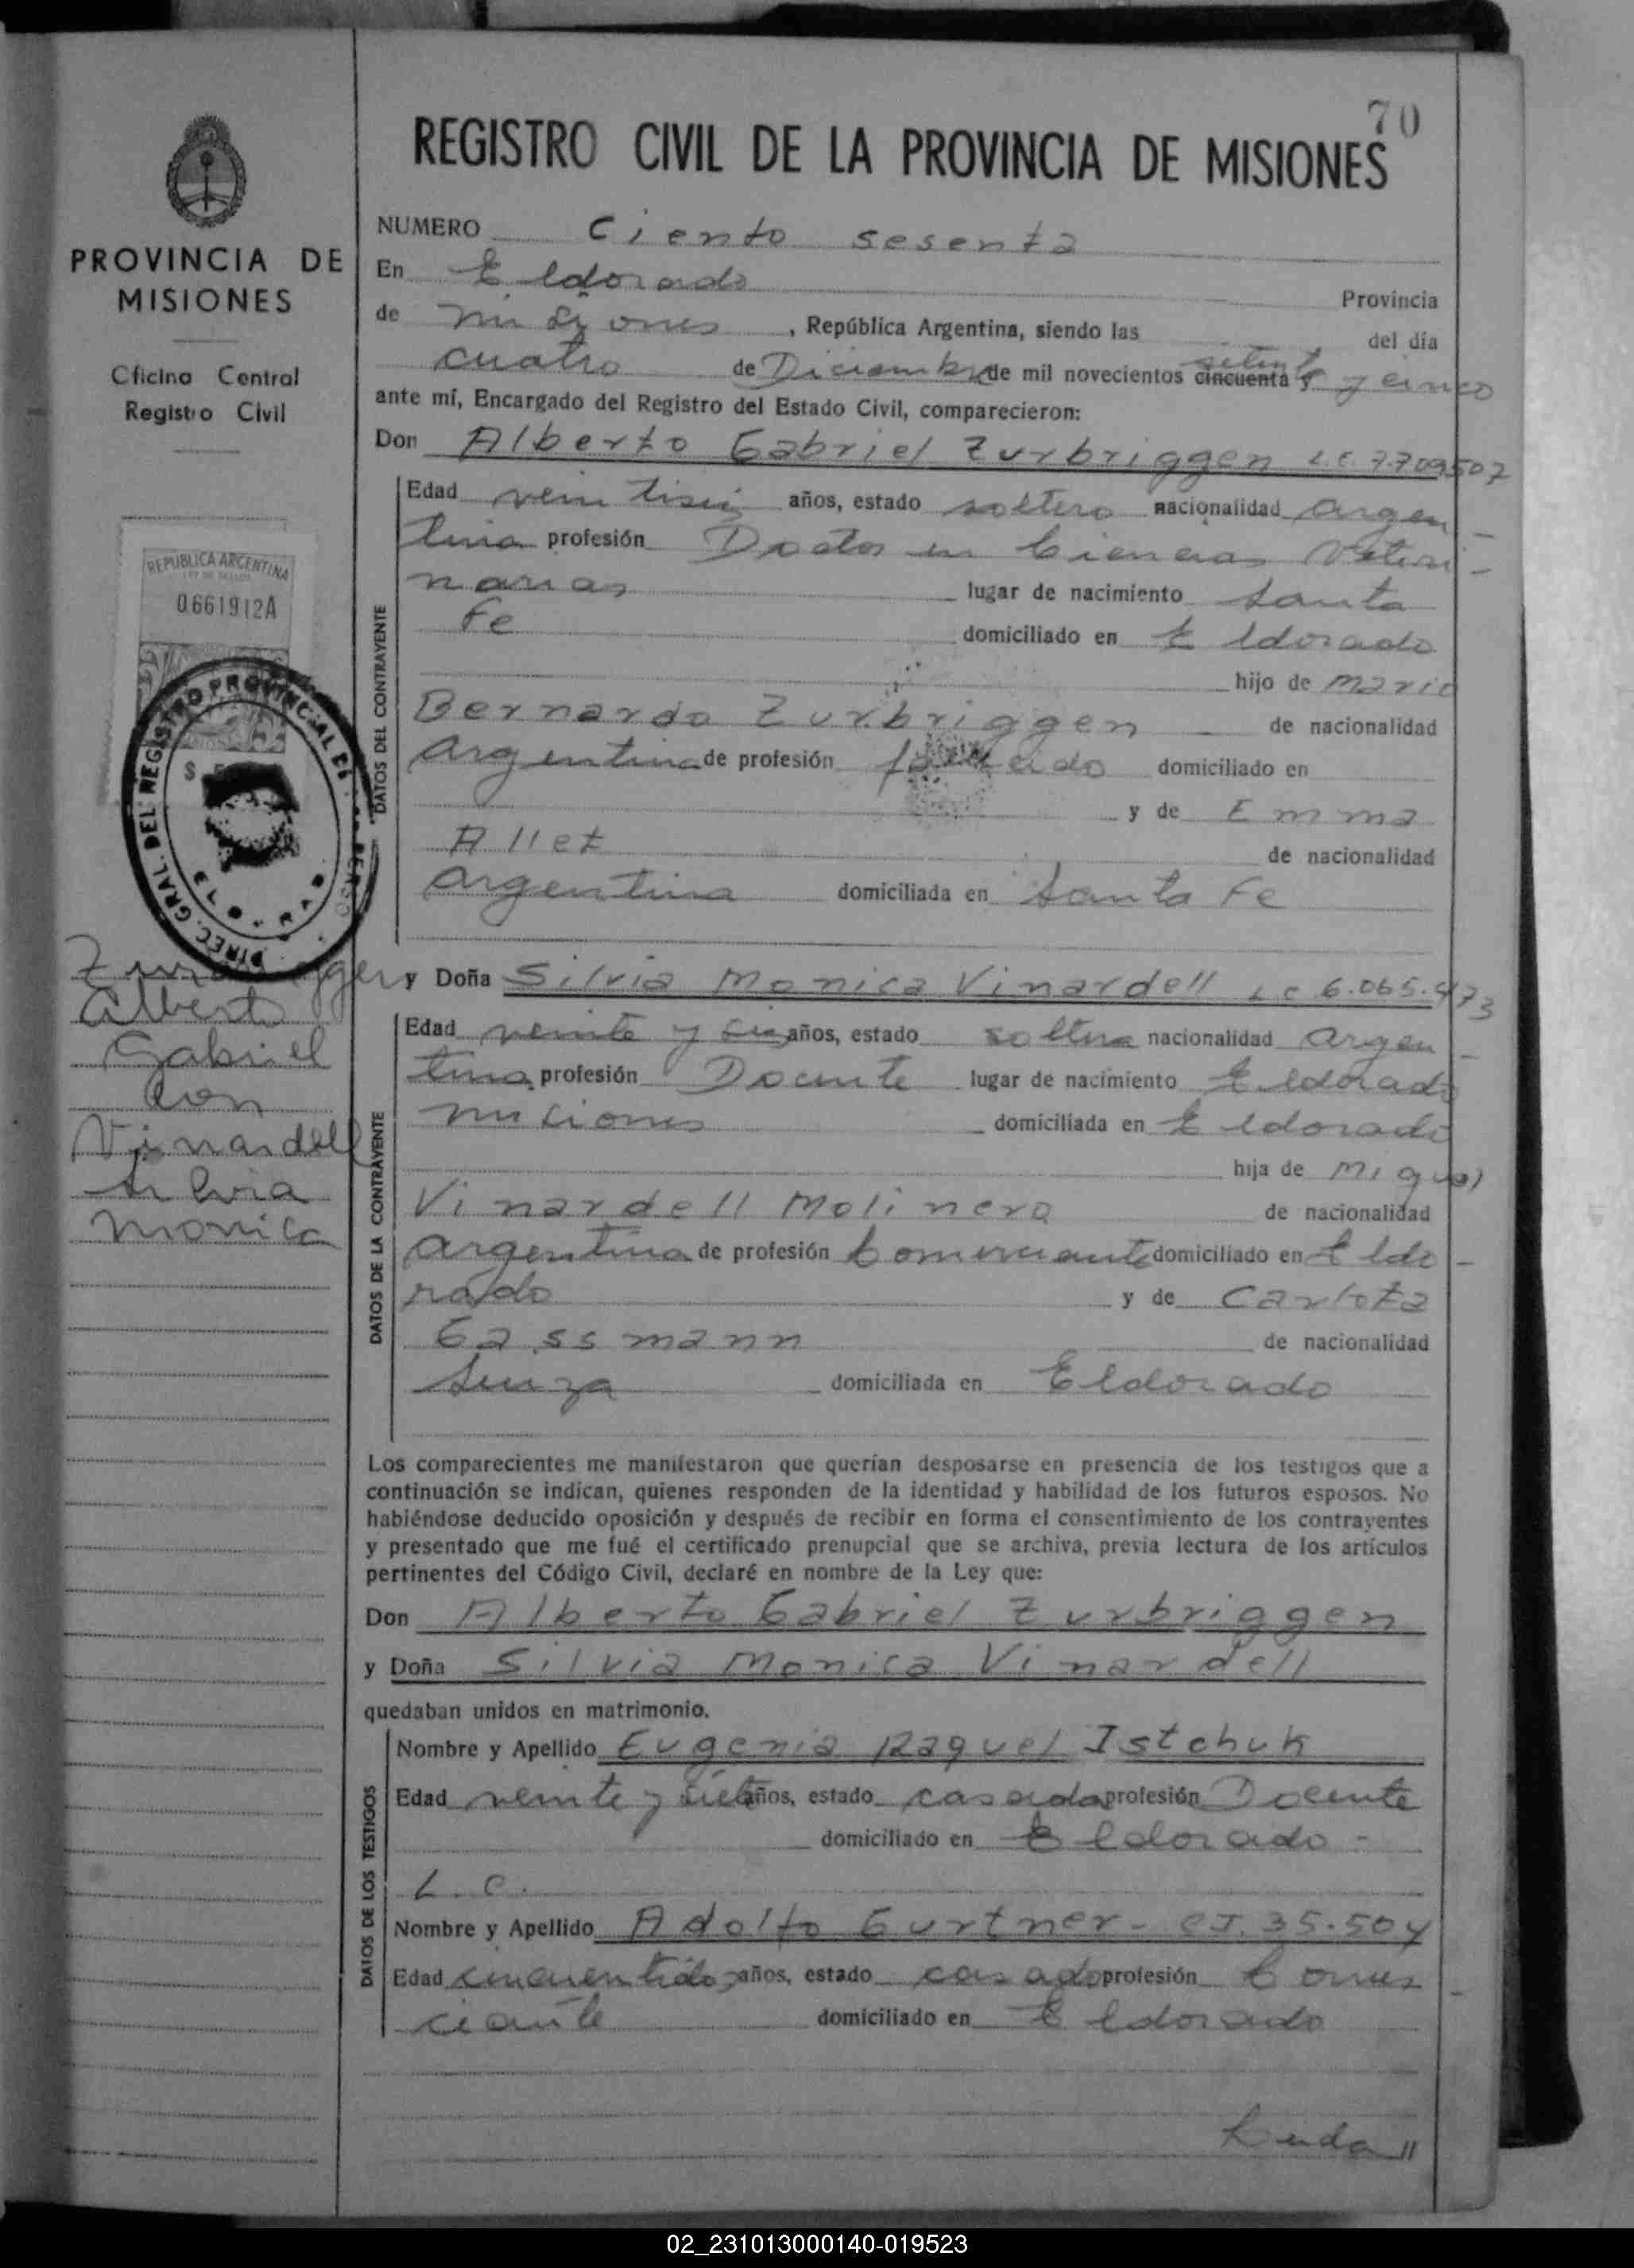 70
REGISTRO CIVIL DE LA PROVINCIA DE MISIONES
PROVINCIA DE
MISIONES
Oficina Central
Registro Civil
REPUBLICA ARGENTINA
0661912A
$
DIREC. GRAL. DEL REGISTRO PROVINCIAL DE
Zurbriggen
Alberto
Gabriel
con
Vinardell
Silvia
Monica
NUMERO Ciento sesenta
En Eldorado Provincia
de Misiones, República Argentina, siendo las del día
cuatro de Diciembre de mil novecientos cincuenta y setenta y cinco
ante mí, Encargado del Registro del Estado Civil, comparecieron:
Don Alberto Gabriel Zurbriggen L.E. 7.709507
DATOS DEL CONTRAYENTE
Edad veintiseis años, estado soltero nacionalidad Argen-
tina profesión Doctor en Ciencias Veteri-
narias lugar de nacimiento Santa
Fe domiciliado en Eldorado
hijo de Mario
Bernardo Zurbriggen de nacionalidad
Argentina de profesión domiciliado en
y de Emma
Allet de nacionalidad
Argentina domiciliada en Santa Fe
y Doña Silvia Monica Vinardell L C 6.065.473
DATOS DE LA CONTRAYENTE
Edad veinte y seis años, estado soltera nacionalidad Argen-
tina profesión Docente lugar de nacimiento Eldorado
Misiones domiciliada en Eldorado
hija de Miguel
Vinardell Molinero de nacionalidad
Argentina de profesión Comerciante domiciliado en Eldo-
rado y de Carlota
Gassmann de nacionalidad
Suiza domiciliada en Eldorado
Los comparecientes me manifestaron que querían desposarse en presencia de los testigos que a
continuación se indican, quienes responden de la identidad y habilidad de los futuros esposos. No
habiéndose deducido oposición y después de recibir en forma el consentimiento de los contrayentes
y presentado que me fué el certificado prenupcial que se archiva, previa lectura de los artículos
pertinentes del Código Civil, declaré en nombre de la Ley que:
Don Alberto Gabriel Zurbriggen
y Doña Silvia Monica Vinardell
quedaban unidos en matrimonio.
DATOS DE LOS TESTIGOS
Nombre y Apellido Eugenia Raquel Istchuk
Edad veinte y siete años, estado casada profesión Docente
domiciliado en Eldorado -
L.C.
Nombre y Apellido Adolfo Gurtner - CI. 35.504
Edad cincuentidos años, estado casado profesión Comer-
ciante domiciliado en Eldorado
02_231013000140-019523